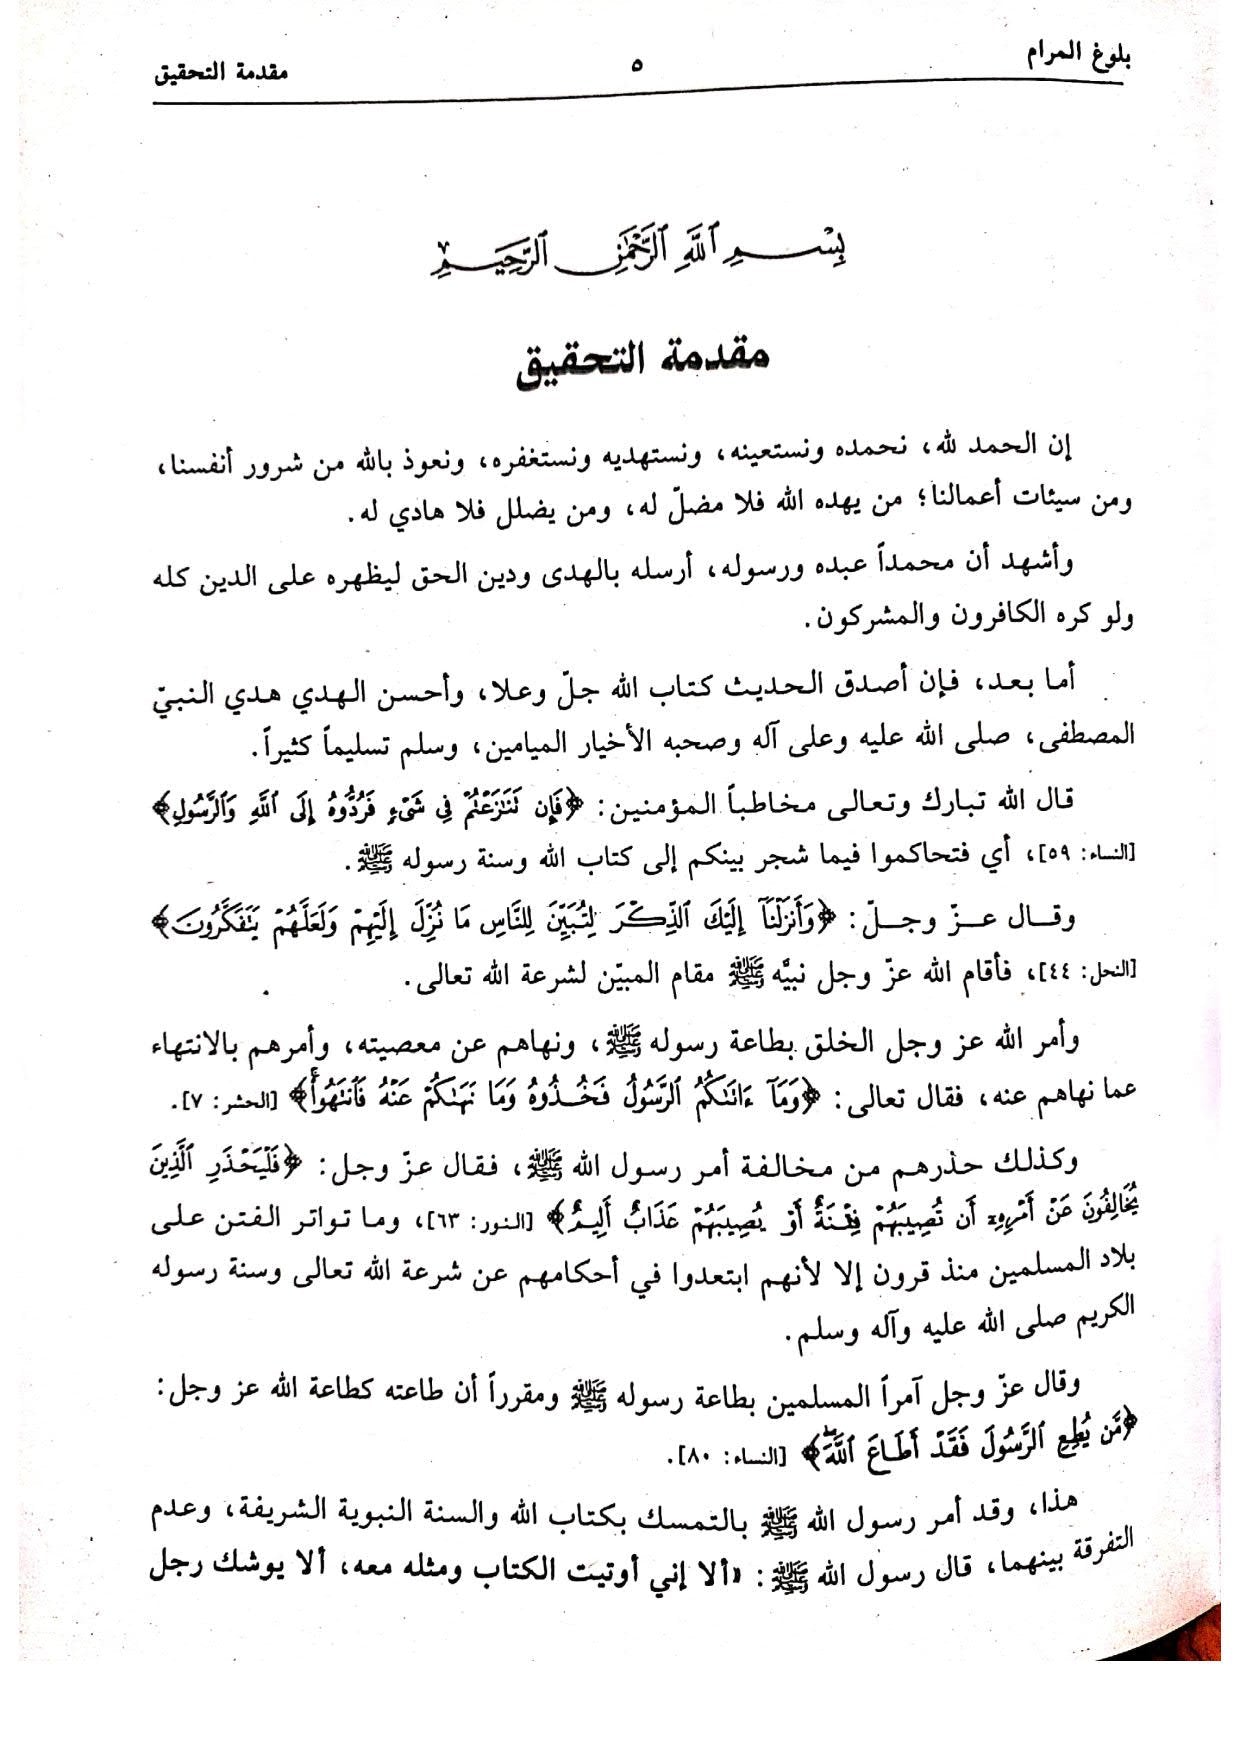 بلوغ المرام ٥ مقدمة التحقيق
بِسْمِ ٱللَّهِ ٱلرَّحْمَٰنِ ٱلرَّحِيمِ
مقدمة التحقيق
إن الحمد لله، نحمده ونستعينه، ونستهديه ونستغفره، ونعوذ بالله من شرور أنفسنا،
ومن سيئات أعمالنا؛ من يهده الله فلا مضلّ له، ومن يضلل فلا هادي له.
وأشهد أن محمداً عبده ورسوله، أرسله بالهدى ودين الحق ليظهره على الدين كله
ولو كره الكافرون والمشركون.
أما بعد، فإن أصدق الحديث كتاب الله جلّ وعلا، وأحسن الهدي هدي النبيّ
المصطفى، صلى الله عليه وعلى آله وصحبه الأخيار الميامين، وسلم تسليماً كثيراً.
قال الله تبارك وتعالى مخاطباً المؤمنين: ﴿فَإِن تَنَٰزَعْتُمْ فِي شَىْءٍ فَرُدُّوهُ إِلَى ٱللَّهِ وَٱلرَّسُولِ﴾
[النساء: ٥٩]، أي فتحاكموا فيما شجر بينكم إلى كتاب الله وسنة رسوله ﷺ.
وقال عزّ وجلّ: ﴿وَأَنزَلْنَآ إِلَيْكَ ٱلذِّكْرَ لِتُبَيِّنَ لِلنَّاسِ مَا نُزِّلَ إِلَيْهِمْ وَلَعَلَّهُمْ يَتَفَكَّرُونَ﴾
[النحل: ٤٤]، فأقام الله عزّ وجل نبيَّه ﷺ مقام المبيّن لشرعة الله تعالى.
وأمر الله عز وجل الخلق بطاعة رسوله ﷺ، ونهاهم عن معصيته، وأمرهم بالانتهاء
عما نهاهم عنه، فقال تعالى: ﴿وَمَآ ءَاتَىٰكُمُ ٱلرَّسُولُ فَخُذُوهُ وَمَا نَهَىٰكُمْ عَنْهُ فَٱنتَهُواْ﴾ [الحشر: ٧].
وكذلك حذرهم من مخالفة أمر رسول الله ﷺ، فقال عزّ وجل: ﴿فَلْيَحْذَرِ ٱلَّذِينَ
يُخَالِفُونَ عَنْ أَمْرِهِۦٓ أَن تُصِيبَهُمْ فِتْنَةٌ أَوْ يُصِيبَهُمْ عَذَابٌ أَلِيمٌ﴾ [النور: ٦٣]، وما تواتر الفتن على
بلاد المسلمين منذ قرون إلا لأنهم ابتعدوا في أحكامهم عن شرعة الله تعالى وسنة رسوله
الكريم صلى الله عليه وآله وسلم.
وقال عزّ وجل آمراً المسلمين بطاعة رسوله ﷺ ومقرراً أن طاعته كطاعة الله عز وجل:
﴿مَّن يُطِعِ ٱلرَّسُولَ فَقَدْ أَطَاعَ ٱللَّهَ﴾ [النساء: ٨٠].
هذا، وقد أمر رسول الله ﷺ بالتمسك بكتاب الله والسنة النبوية الشريفة، وعدم
التفرقة بينهما، قال رسول الله ﷺ: «ألا إني أوتيت الكتاب ومثله معه، ألا يوشك رجل